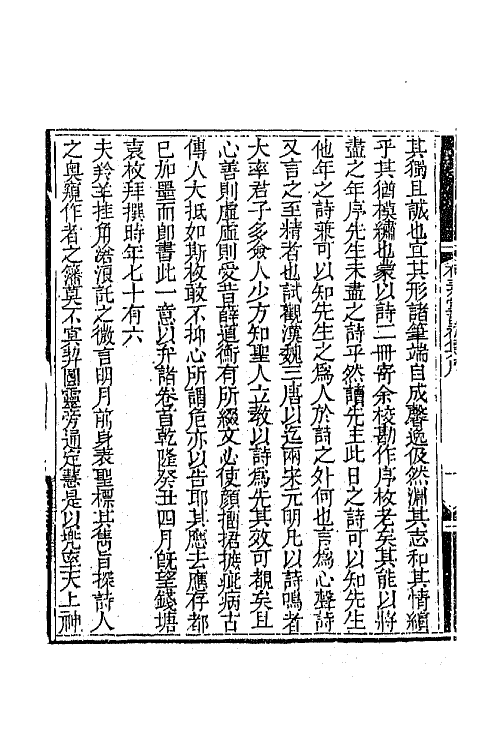 其獨且誠也宜其形諸筆端自成馨逸伋然淵其志和其情縋
乎其猶模繡也蒙以詩二冊寄余校勘作序枚老矣其能以將
盡之年序先生未盡之詩乎然讀先生此日之詩可以知先生
他年之詩兼可以知先生之為人於詩之外何也言為心聲詩
又言之至精者也試觀漢魏三唐以迄兩宋元明凡以詩鳴者
大率君子多僉人少方知聖人立教以詩為先其效可覩矣且
心善則虛虛則受昔薛道衡有所綴文必使顏搢捃摭疵病古
傳人大抵如斯枚敢不抑心所謂危亦以告耶其應去應存都
已加墨而卽書此一意以弁諸卷首乾隆癸丑四月旣望錢塘
袁枚拜撰時年七十有六
夫羚羊挂角滄浪託之微言明月前身表聖標其雋旨探詩人
之奧窺作者之籓莫不冥契圓靈旁通定慧是以兜率天上神